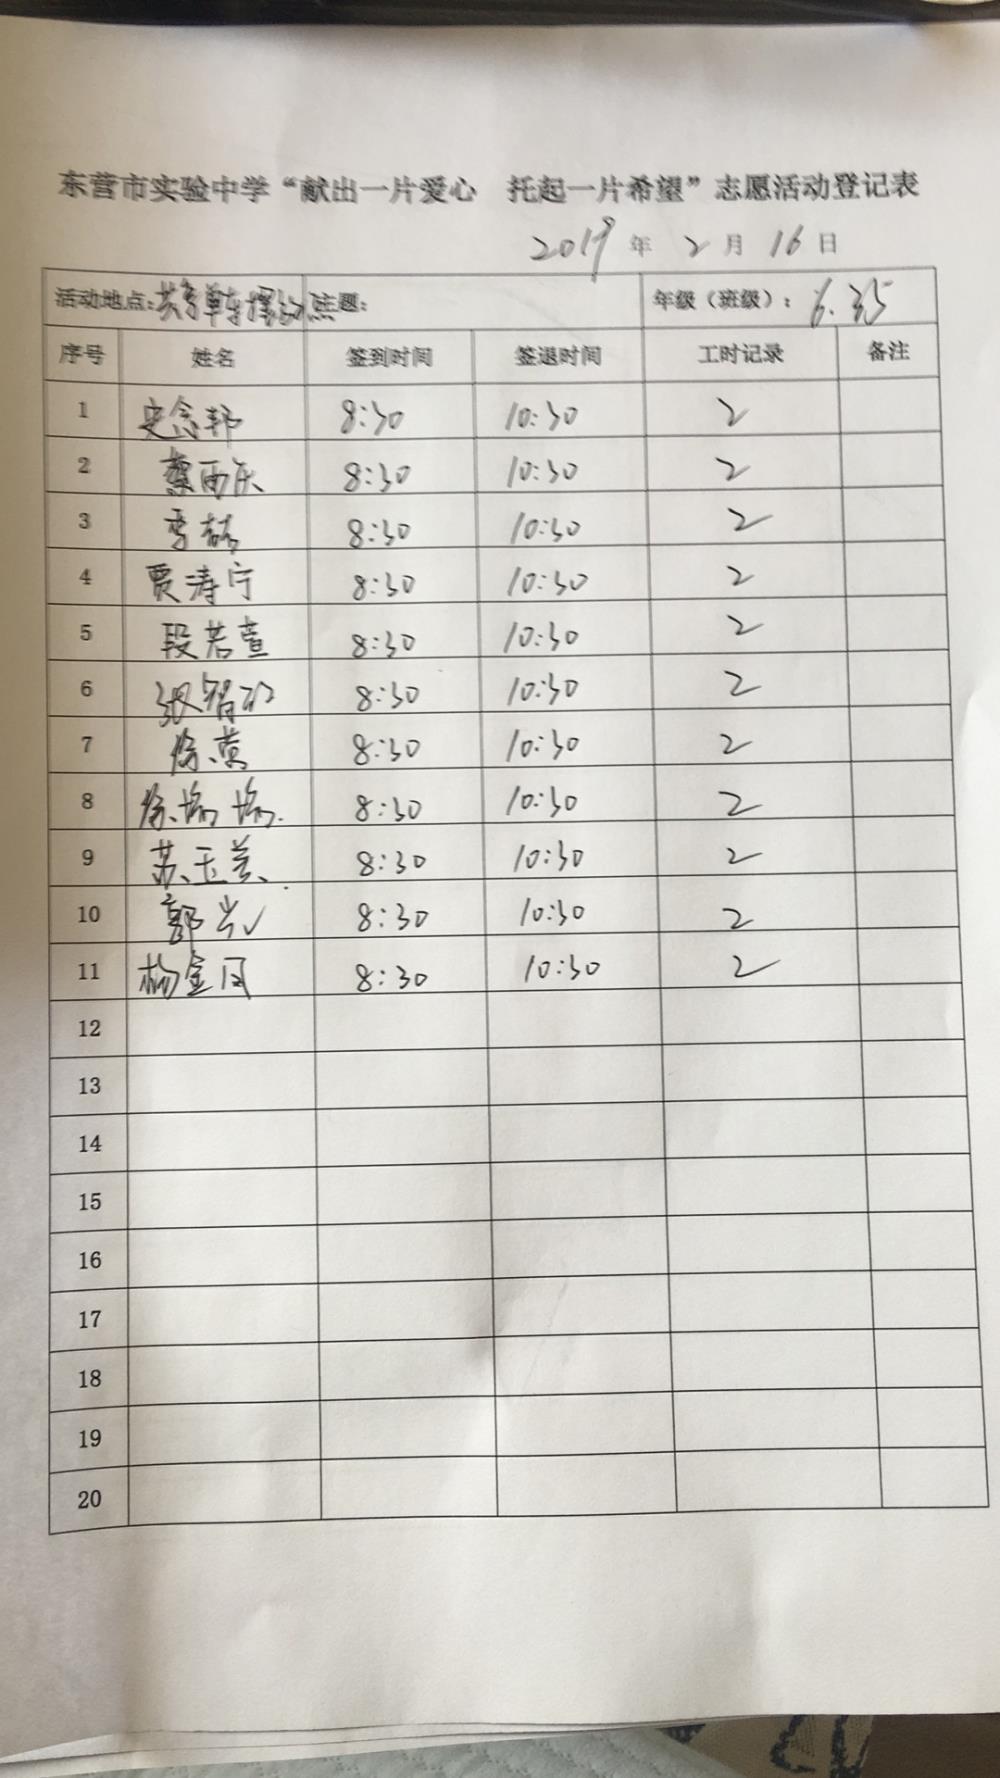 东营市实验中学“献出一片爱心 托起一片希望”志愿活动登记表
2019 年 2 月 16 日
活动地点:共享单车摆放点 主题: 年级（班级）: 6.35
序号 姓名 签到时间 签退时间 工时记录 备注
1 史念邦 8:30 10:30 2
2 西庆 8:30 10:30 2
3 李喆 8:30 10:30 2
4 贾涛宁 8:30 10:30 2
5 段若萱 8:30 10:30 2
6 张智 8:30 10:30 2
7 徐莹 8:30 10:30 2
8 徐瑞瑞. 8:30 10:30 2
9 苏玉美 8:30 10:30 2
10 郭 8:30 10:30 2
11 杨金凤 8:30 10:30 2
12
13
14
15
16
17
18
19
20